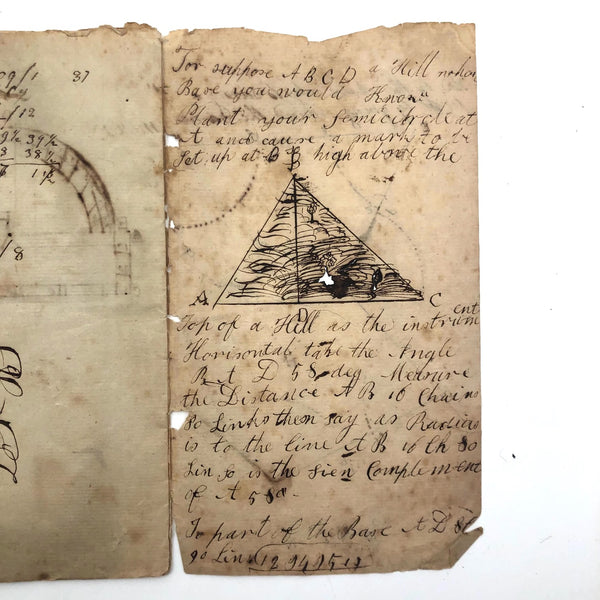 37
9½ 39½
8 38½
1½
/8
For suppose A B C D a Hill whos
Base you would Know
Plant your Semicircle at
A and cause a mark to be
Set up at B high above the
B
A
C
D
Top of a Hill as the instrument
Horisontal take the Angle
B A D 58 deg Measure
the Distance A B 16 Chains
80 Links then say as Radius
is to the line A B 16 Ch 80
Lin so is the Sien Complement
of A 58 -
To part of the Base A D 8
90 Lin